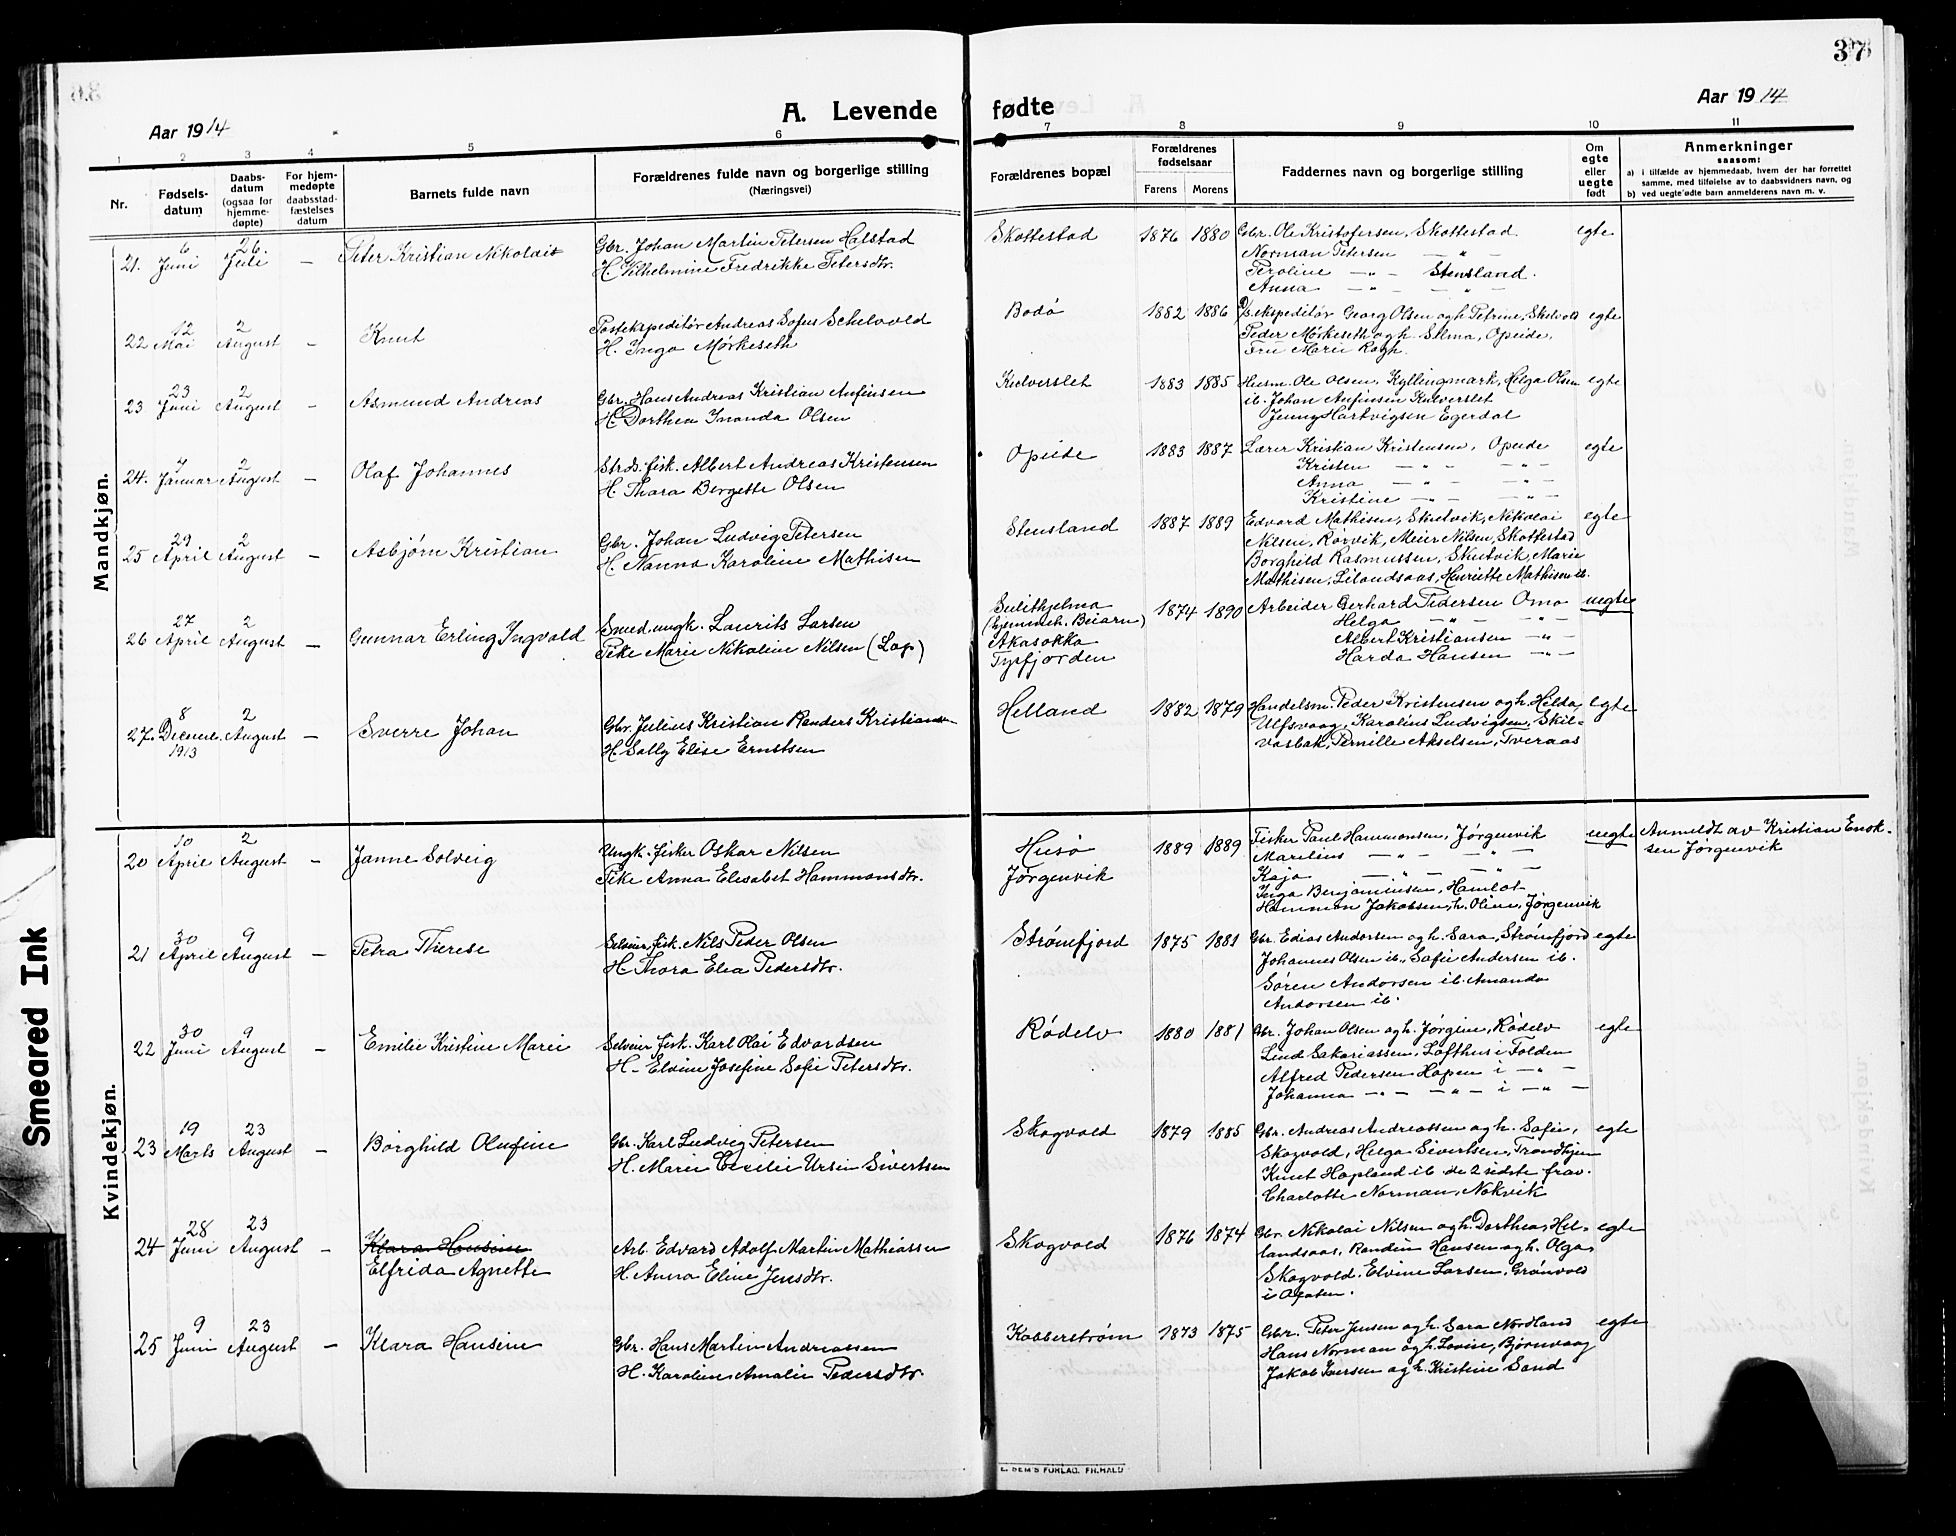 37
Aar 1914
A. Levende fødte
Aar 1914
1 2 3 4 5 6 7 8 9 10 11
Nr.
Fødsels-
datum
Daabs-
datum
(ogsaa for
hjemme-
døpte)
For hjem-
medøpte
daabsstad-
fæstelses
datum
Barnets fulde navn
Forældrenes fulde navn og borgerlige stilling
(Næringsvei)
Forældrenes bopæl
Forældrenes
fødselsaar
Farens Morens
Faddernes navn og borgerlige stilling
Om
egte
eller
uegte
født
Anmerkninger
saasom:
a) i tilfælde av hjemmedaab, hvem der har forrettet
samme, med tilføielse av to daabsvidners navn, og
b) ved uegte fødte barn anmelderens navn m. v.
Mandkjøn.
21. 6 Juni 26. Juli — Peter Kristian Nikolai
Gbr. Johan Martin Petersen Halstad
H. Vilhelmine Fredrikke Petersdtr.
Skottestad 1876 1880
Gbr. Ole Kristofersen, Skottestad
Norman Petersen — " —
Peroline — " — Stensland.
Anna — " — — " —
egte
22 12 Mai 2 August — Knut
Postekspeditør Andreas Sofus Schelvold
H. Inga Mørkeseth
Bodø 1882 1886
D/s.ekspeditør Georg Olsen og h. Petrine, Skelvold
Peder Mørkeseth og h. Selma, Opeide,
Fru Marie Kogh.
egte
23 23 Juni 2 August — Asmund Andreas
Gbr. Hans Andreas Kristian Anfinsen
H. Dorthea Inanda Olsen
Kulverslet 1883 1885
Husm. Ole Olsen, Kyllingmark, Helga Olsen
ib. Johan Anfinsen Kulverslet
Jenny Hartvigsen Egerdal
egte
24. 4 Januar 2 August — Olaf Johannes
Strds. fisk. Albert Andreas Kristensen
H. Thora Bergette Olsen
Opeide 1883 1887
Lærer Kristian Kristensen, Opeide
Kristen — " — — " —
Anna — " — — " —
Kristine — " — — " —
egte
25 29 April 2 August — Asbjørn Kristian
Gbr. Johan Ludvig Petersen
H. Nanna Karoline Mathisen
Stensland 1887 1889
Edvard Mathisen, Skutvik, Nikolai
Nilsen, Rørvik, Meier Nilsen, Skottestad
Borghild Rasmussen, Skutvik, Marie
Mathisen, Lilandsaas, Henriette Mathisen ib.
egte
26 27 April 2 August — Gunnar Erling Ingvald
Smed. ungk. Laurits Larsen
Pike Marie Nikoline Nilsen (Lap)
Sulithjelma
(hjemmeh. Beiarn)
Akasokka
Tysfjorden
1874 1890
Arbeider Gerhard Pedersen Omo
Helga — " — — " —
Albert Kristiansen — " —
Harda Hansen — " —
uegte
27. 8 Decemb. 1913 2 August — Sverre Johan
Gbr. Julius Kristian Randers Kristiansen
H. Sally Elise Ernstsen
Helland 1882 1879
Handelsm. Peder Kristensen og h. Hilda,
Ulfsvaag, Karolius Ludvigsen, Skil-
vasbak, Pernille Akselsen, Tveraas
egte
Kvindekjøn.
20 10 April 2 August — Janne Solveig
Ungk. fisker Oskar Nilsen
Pike Anna Elisabet Hammonsdtr.
Husø
Jørgenvik
1889 1889
Fisker Paul Hammonsen, Jørgenvik
Marelius — " — — " —
Kaja — " — — " —
Inga Benjaminsen, Hamlot
Hammon Jakobsen, h. Oline, Jørgenvik
uegte
Anmeldt av Kristian Enok-
sen Jørgenvik
21 30 April 9 August — Petra Therese
Selveier, fisk. Nils Peder Olsen
H. Thora Elea Pedersdtr.
Strønefjord 1875 1881
Gbr. Edias Andorsen og h. Sara, Strønefjord
Johannes Olsen ib., Sofie Andersen ib.
Søren Andorsen ib. Amanda
Andorsen ib.
egte
22 30 Juni 9 August — Emilie Kristine Marie
Selveier fisk. Karl Olai Edvardsen
H. Elvine Josefine Sofie Petersdtr.
Rødelv 1880 1881
Gbr. Johan Olsen og h. Jørgine, Rødelv
Lind Sakariassen, Lofthus i Folden
Alfred Pedersen Hopen i — " —
Johanna — " — — " — i — " —
egte
23 19 Marts 23 August — Borghild Olufine
Gbr. Karl Ludvig Petersen
H. Marie Cecilie Ursin Sivertsen
Skogvold 1879 1885
Gbr. Andreas Andreassen og h. Sofie,
Skogvold, Helga Sivertsen, Trondhjem
Knut Hopland ib. de 2 sidste frav.
Charlotte Norman, Nokvik
egte
24 28 Juni 23 August — Klara Hansine
Elfrida Agnette
Arb. Edvard Adolf Martin Mathiassen
H. Anna Eline Jensdtr.
Skogvold 1876 1874
Gbr. Nikolai Nilsen og h. Dorthea, Hel-
landsaas, Randin Hansen og h. Olga,
Skogvold. Elvine Larsen, Grønvold
i Ofoten.
egte
25 9 Juni 23 August — Klara Hansine
Gbr. Hans Martin Andreassen
H. Karoline Amalie Pedersdtr.
Kobberstrøm 1873 1875
Gbr. Peter Jensen og h. Sara Nordland
Hans Norman og h. Lovise, Bjørnvaag
Jakob Iversen og h. Kristine Sand
egte
E. SEM'S FORLAG, FR.HALD
Smeared Ink